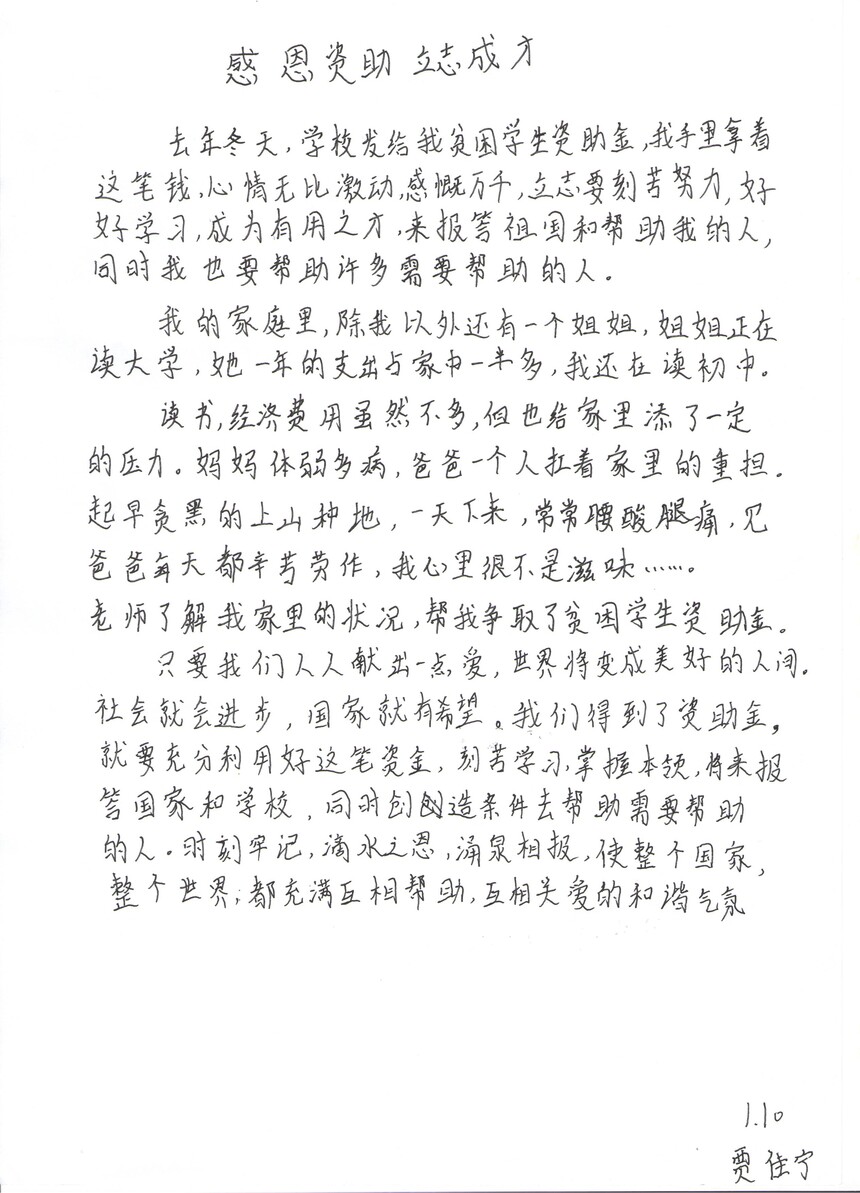 感恩资助 立志成才
去年冬天,学校发给我贫困学生资助金,我手里拿着
这笔钱,心情无比激动,感慨万千,立志要刻苦努力,好
好学习,成为有用之才,来报答祖国和帮助我的人,
同时我也要帮助许多需要帮助的人。
我的家庭里,除我以外还有一个姐姐,姐姐正在
读大学,她一年的支出占家中一半多,我还在读初中。
读书,经济费用虽然不多,但也给家里添了一定
的压力。妈妈体弱多病,爸爸一个人扛着家里的重担.
起早贪黑的上山种地,一天下来,常常腰酸腿痛,见
爸爸每天都辛苦劳作,我心里很不是滋味……。
老师了解我家里的状况,帮我争取了贫困学生资助金。
只要我们人人献出一点爱,世界将变成美好的人间.
社会就会进步,国家就有希望。我们得到了资助金,
就要充分利用好这笔资金,刻苦学习,掌握本领,将来报
答国家和学校,同时创造条件去帮助需要帮助
的人。时刻牢记,滴水之恩,涌泉相报,使整个国家,
整个世界,都充满互相帮助,互相关爱的和谐气氛
1.10
贾佳宁